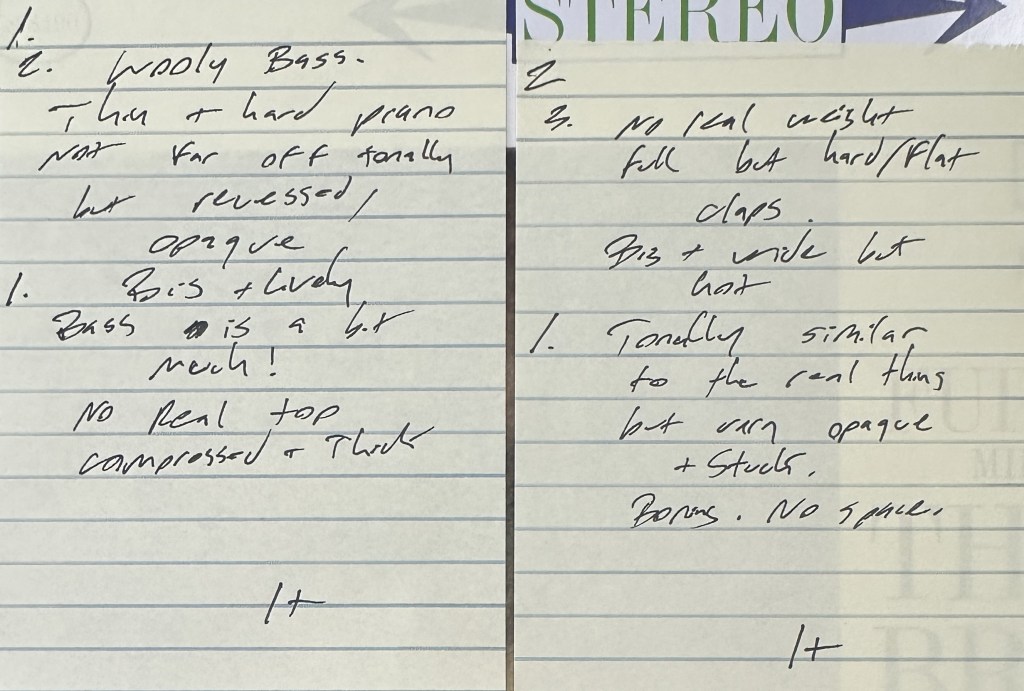 1.
2. Wooly Bass.
Thin + hard piano
Not far off tonally
but recessed/
opaque
1. Big + lively
Bass is a bit
much!
No Real top
compressed + Thick
1+
STEREO
2
3. No real weight
full but hard/flat
claps.
Big + wide but
hot
1. Tonally similar
to the real thing
but very opaque
+ Stuck.
Boring. No space.
1+